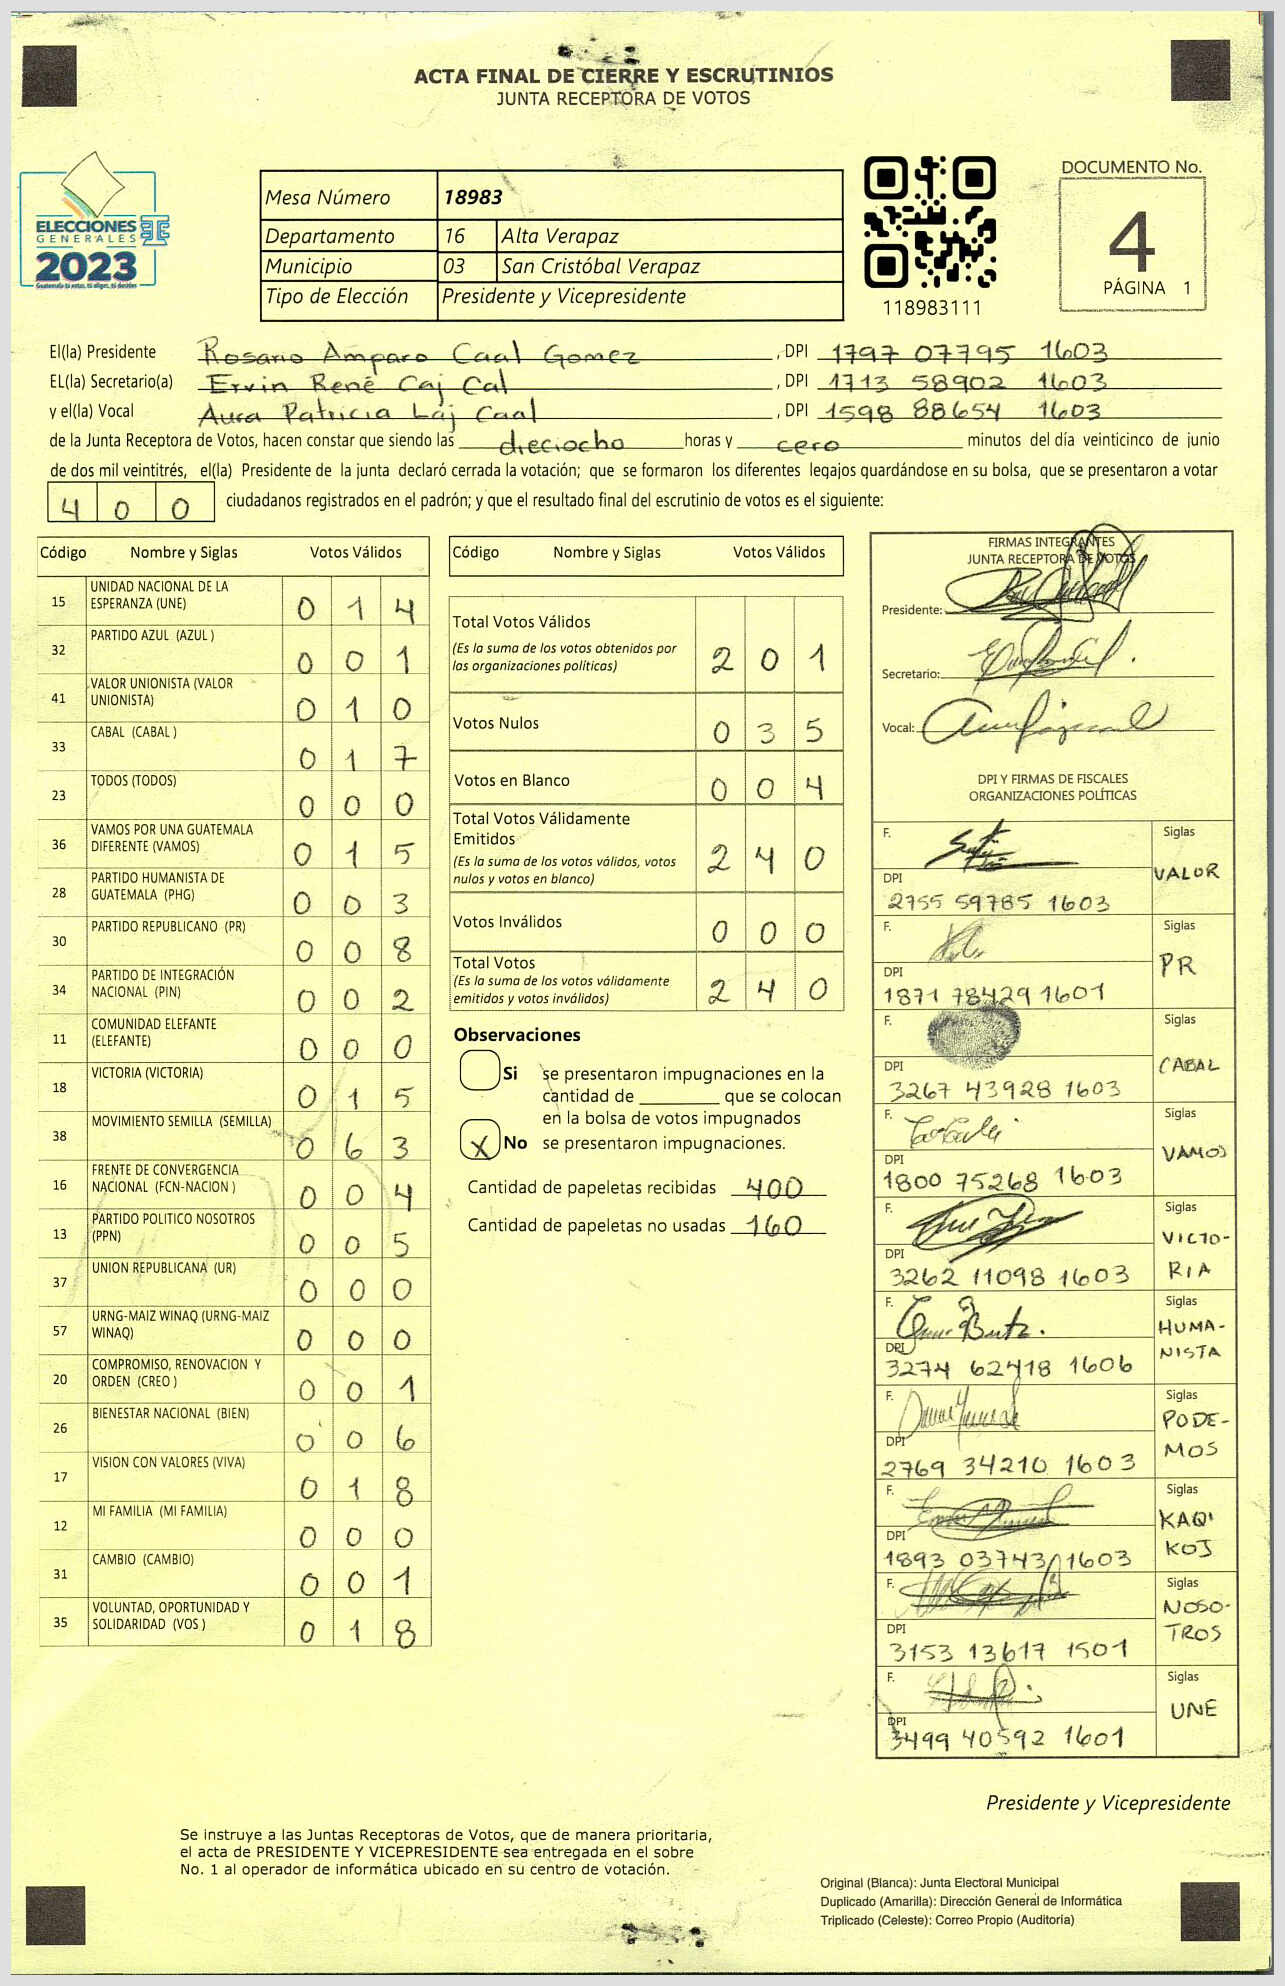 ACTA FINAL DE CIERRE Y ESCRUTINIOS
JUNTA RECEPTORA DE VOTOS
ELECCIONES
GENERALES
2023
Guatemala tú votas, tú eliges, tú decides
Mesa Número 18983
Departamento 16 Alta Verapaz
Municipio 03 San Cristóbal Verapaz
Tipo de Elección Presidente y Vicepresidente
118983111
DOCUMENTO No.
4
PÁGINA 1
El(la) Presidente Rosario Amparo Caal Gomez , DPI 1797 07795 1603
EL(la) Secretario(a) Ervin René Caj Cal , DPI 1713 58902 1603
y el(la) Vocal Aura Patricia Laj Caal , DPI 1598 88654 1603
de la Junta Receptora de Votos, hacen constar que siendo las dieciocho horas y cero minutos del día veinticinco de junio
de dos mil veintitrés, el(la) Presidente de la junta declaró cerrada la votación; que se formaron los diferentes legajos quardándose en su bolsa, que se presentaron a votar
400 ciudadanos registrados en el padrón; y que el resultado final del escrutinio de votos es el siguiente:
Código Nombre y Siglas Votos Válidos
15 UNIDAD NACIONAL DE LA ESPERANZA (UNE) 0 1 4
32 PARTIDO AZUL (AZUL ) 0 0 1
41 VALOR UNIONISTA (VALOR UNIONISTA) 0 1 0
33 CABAL (CABAL ) 0 1 7
23 TODOS (TODOS) 0 0 0
36 VAMOS POR UNA GUATEMALA DIFERENTE (VAMOS) 0 1 5
28 PARTIDO HUMANISTA DE GUATEMALA (PHG) 0 0 3
30 PARTIDO REPUBLICANO (PR) 0 0 8
34 PARTIDO DE INTEGRACIÓN NACIONAL (PIN) 0 0 2
11 COMUNIDAD ELEFANTE (ELEFANTE) 0 0 0
18 VICTORIA (VICTORIA) 0 1 5
38 MOVIMIENTO SEMILLA (SEMILLA) 0 6 3
16 FRENTE DE CONVERGENCIA NACIONAL (FCN-NACION ) 0 0 4
13 PARTIDO POLITICO NOSOTROS (PPN) 0 0 5
37 UNION REPUBLICANA (UR) 0 0 0
57 URNG-MAIZ WINAQ (URNG-MAIZ WINAQ) 0 0 0
20 COMPROMISO, RENOVACION Y ORDEN (CREO ) 0 0 1
26 BIENESTAR NACIONAL (BIEN) 0 0 6
17 VISION CON VALORES (VIVA) 0 1 8
12 MI FAMILIA (MI FAMILIA) 0 0 0
31 CAMBIO (CAMBIO) 0 0 1
35 VOLUNTAD, OPORTUNIDAD Y SOLIDARIDAD (VOS ) 0 1 8
Código Nombre y Siglas Votos Válidos
Total Votos Válidos
(Es la suma de los votos obtenidos por
las organizaciones políticas) 2 0 1
Votos Nulos 0 3 5
Votos en Blanco 0 0 4
Total Votos Válidamente
Emitidos
(Es la suma de los votos válidos, votos
nulos y votos en blanco) 2 4 0
Votos Inválidos 0 0 0
Total Votos
(Es la suma de los votos válidamente
emitidos y votos inválidos) 2 4 0
Observaciones
Si se presentaron impugnaciones en la
cantidad de ________ que se colocan
en la bolsa de votos impugnados
X No se presentaron impugnaciones.
Cantidad de papeletas recibidas 400
Cantidad de papeletas no usadas 160
FIRMAS INTEGRANTES
JUNTA RECEPTORA DE VOTOS
Presidente:
Secretario:
Vocal:
DPI Y FIRMAS DE FISCALES
ORGANIZACIONES POLÍTICAS
F. Siglas
VALOR
DPI
2755 59785 1603
F. Siglas
PR
DPI
1871 78429 1601
F. Siglas
CABAL
DPI
3267 43928 1603
F. Siglas
VAMOS
DPI
1800 75268 1603
F. Siglas
VICTO-
RIA
DPI
3262 11098 1603
F. Siglas
HUMA-
NISTA
DPI
3274 62418 1606
F. Siglas
PODE-
MOS
DPI
2769 34210 1603
F. Siglas
KAQ'
KOJ
DPI
1893 03743 1603
F. Siglas
NOSO-
TROS
DPI
3153 13617 1501
F. Siglas
UNE
DPI
3499 40592 1601
Presidente y Vicepresidente
Se instruye a las Juntas Receptoras de Votos, que de manera prioritaria,
el acta de PRESIDENTE Y VICEPRESIDENTE sea entregada en el sobre
No. 1 al operador de informática ubicado en su centro de votación.
Original (Blanca): Junta Electoral Municipal
Duplicado (Amarilla): Dirección General de Informática
Triplicado (Celeste): Correo Propio (Auditoría)